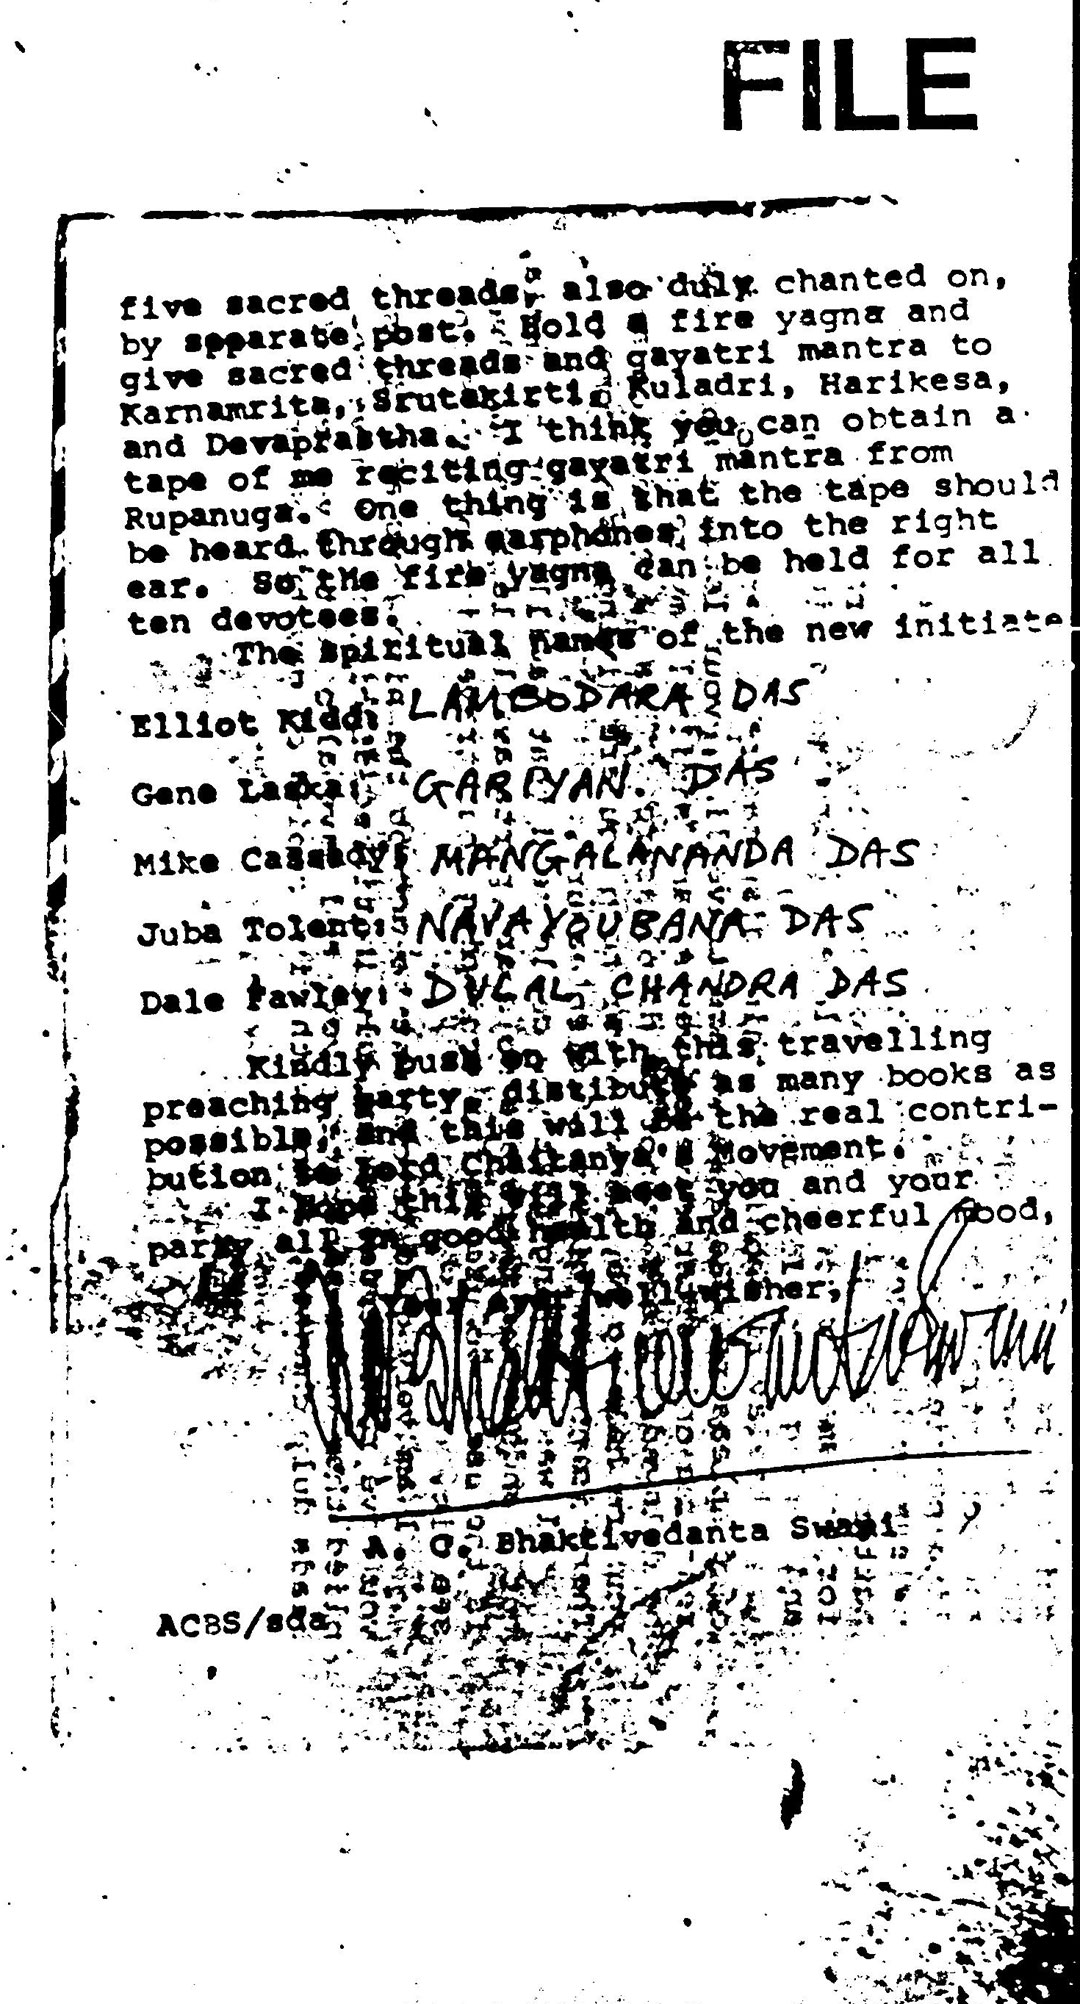 FILE
five sacred threads, also duly chanted on,
by separate post. Hold a fire yagna and
give sacred threads and gayatri mantra to
Karnamrita, Srutakirti, Kuladri, Harikesa,
and Devaprastha. I think you can obtain a
tape of me reciting gayatri mantra from
Rupanuga. One thing is that the tape should
be heard through earphones into the right
ear. So the fire yagna can be held for all
ten devotees.
The spiritual names of the new initiate
Elliot Kidd: LAMBODARA DAS
Gene Laska: GARIYAN. DAS
Mike Cassady: MANGALANANDA DAS
Juba Tolent: NAVAYOUBANA DAS
Dale Pawley: DULAL CHANDRA DAS
Kindly push on with this travelling
preaching party, distibute as many books as
possible, and this will be the real contri-
bution to Lord Chaitanya's Movement.
I hope this will meet you and your
party all in good health and cheerful mood,
Your ever well-wisher,
A. C. Bhaktivedanta Swami
A. C. Bhaktivedanta Swami
ACBS/sda